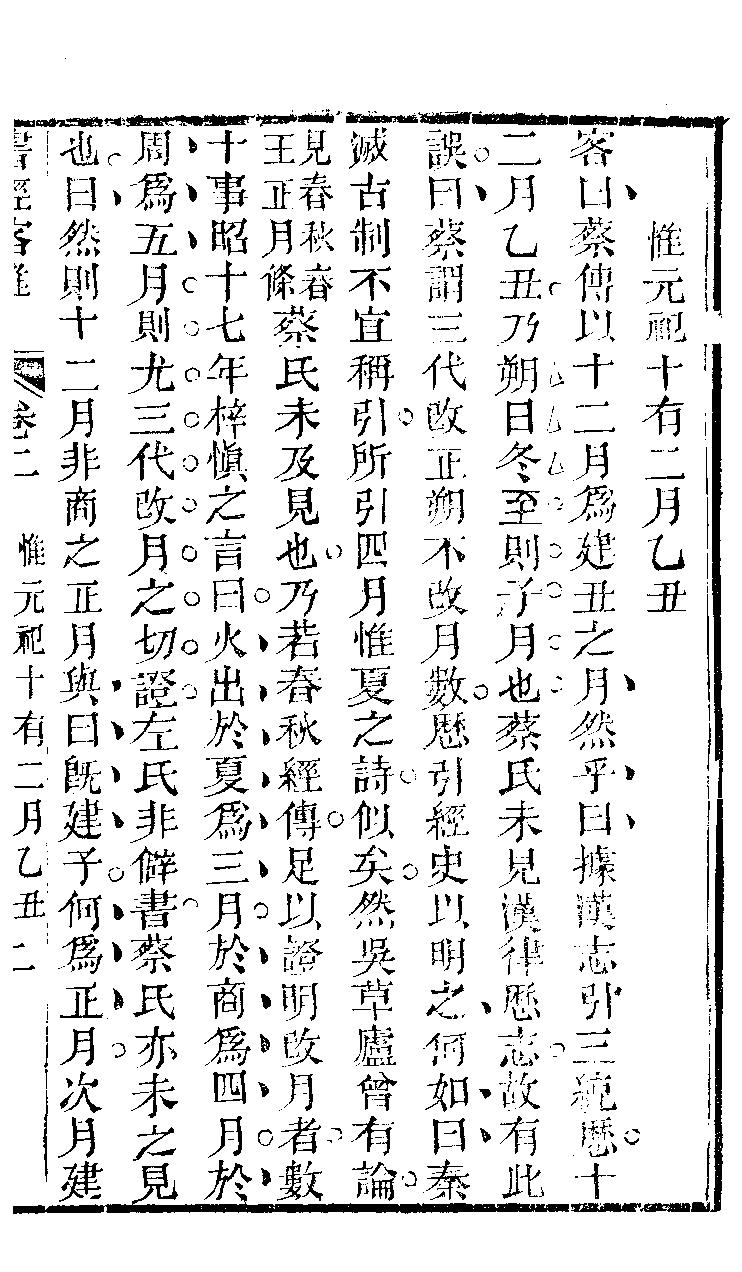 惟元祀十有二月乙丑
客曰蔡傳以十二月爲建丑之月然乎曰據漢志引三統曆十
二月乙丑乃朔日冬至則子月也蔡氏未見漢律曆志故有此
誤曰蔡謂三代改正朔不改月數歷引經史以明之何如曰秦
滅古制不宜稱引所引四月惟夏之詩似矣然吳草廬曾有論
見春秋春
王正月條
蔡氏未及見也乃若春秋經傳足以證明改月者數
十事昭十七年梓慎之言曰火出於夏爲三月於商爲四月於
周爲五月則尤三代改月之切證左氏非僻書蔡氏亦未之見
也曰然則十二月非商之正月與曰旣建子何爲正月次月建
書經客難
卷二
惟元祀十有二月乙丑
二